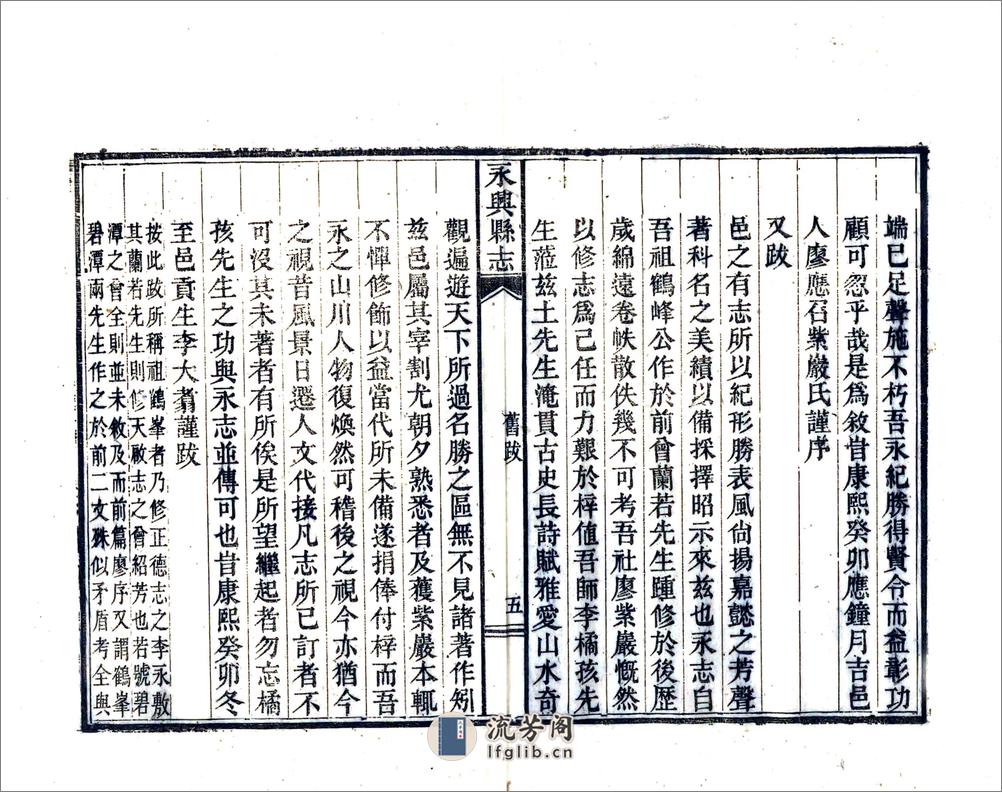 端已足聲施不朽吾永紀勝得賢令而益彰功
顧可忽乎哉是爲敘旹康熙癸卯應鐘月吉邑
人廖應召紫巖氏謹序
又跋
邑之有志所以紀形勝表風尙揚嘉懿之芳聲
著科名之美績以備採擇昭示來兹也永志自
吾祖鶴峰公作於前曾蘭若先生踵修於後歷
歲綿遠卷帙散佚幾不可考吾社廖紫巖慨然
以修志爲己任而力艱於梓値吾師李橘孩先
生蒞兹土先生淹貫古史長詩賦雅愛山水奇
永興縣志
舊跋
五
觀遍遊天下所過名勝之區無不見諸著作矧
兹邑屬其宰割尤朝夕熟悉者及獲紫巖本輒
不憚修飾以益當代所未備遂捐俸付梓而吾
永之山川人物復煥然可稽後之視今亦猶今
之視昔風景日遷人文代接凡志所已訂者不
可沒其未著者有所俟是所望繼起者勿忘橘
孩先生之功與永志並傳可也旹康熙癸卯冬
至邑貢生李大翥謹跋
按此跋所稱祖鶴峯者乃修正德志之李永敷
其蘭若先生則修天啟志之曾紹芳也若號碧
潭之曾全則並未敘及而前篇廖序又謂鶴峯
碧潭兩先生作之於前二文殊似矛盾考全與
流芳阁
lfglib.cn